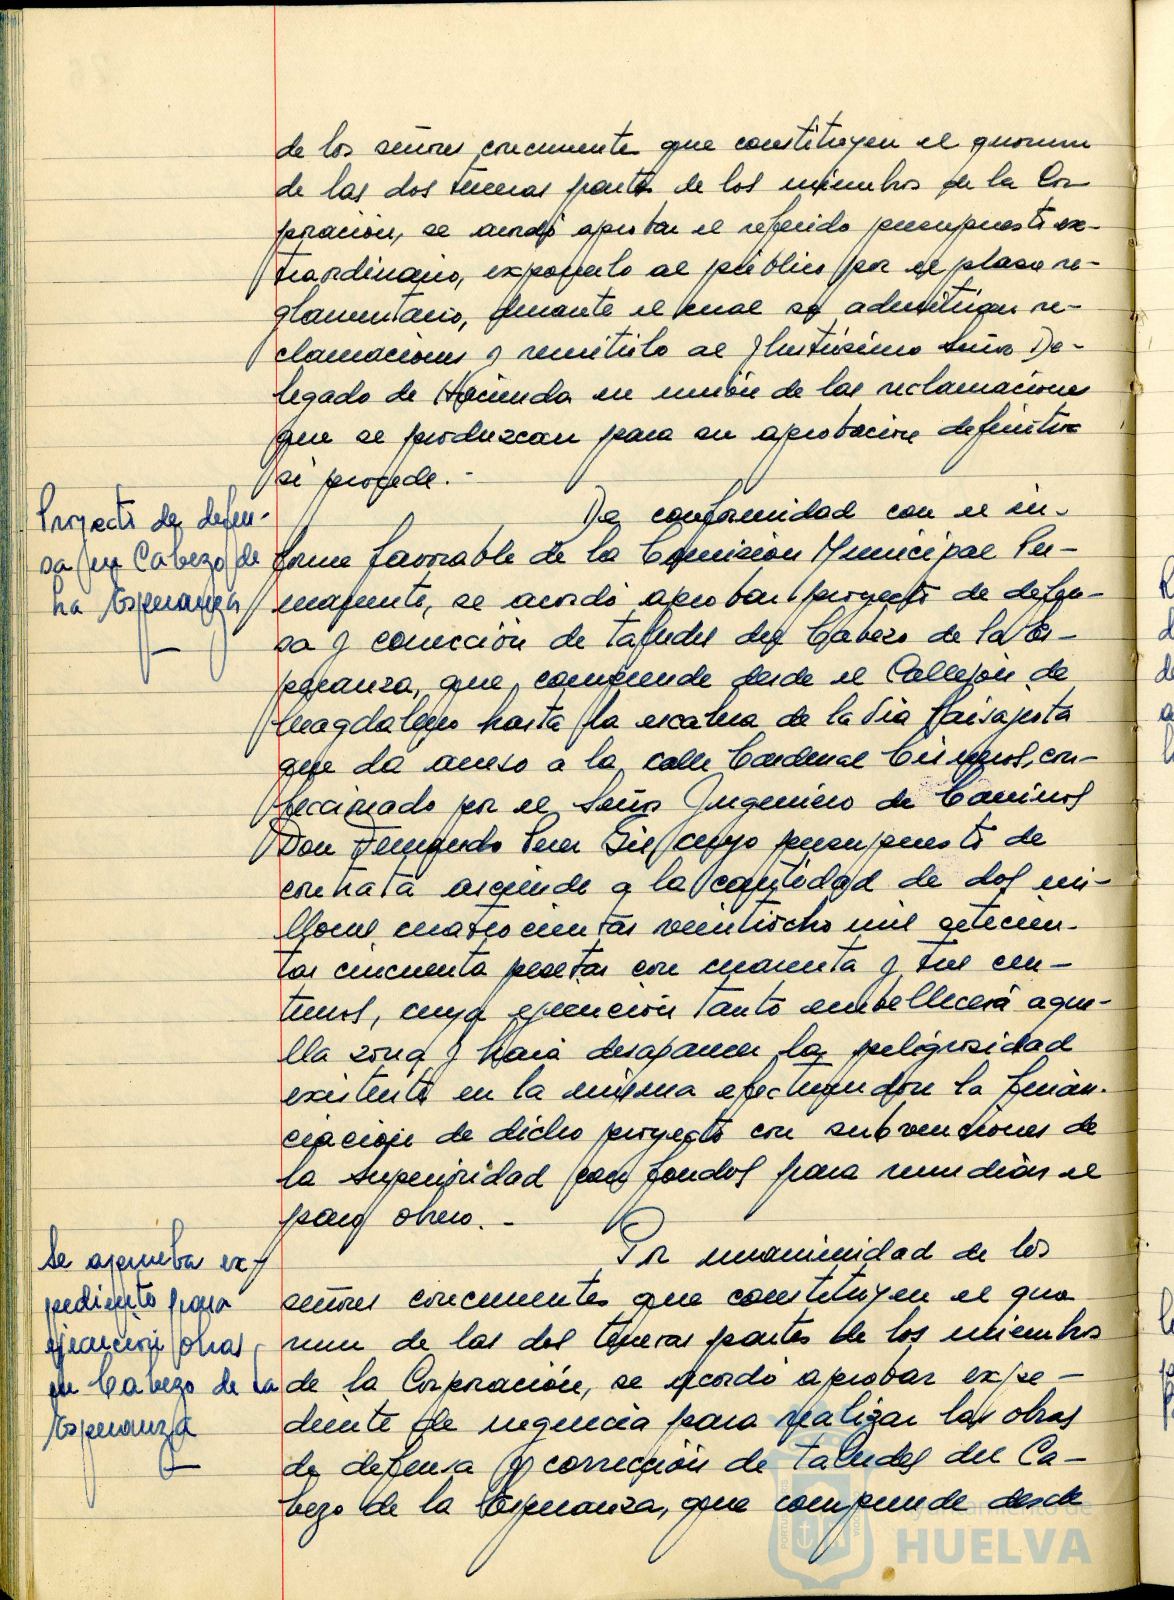 de los señores concurrente que constituyen el quorum
de las dos terceras partes de los miembros de la Cor-
poración, se acordó aprobar el referido presupuesto ex-
traordinario, exponerlo al público por el plazo re-
glamentario, durante el cual se admitirán re-
clamaciones y remitirlo al Ilustrísimo Señor De-
legado de Hacienda en unión de las reclamaciones
que se produzcan para su aprobación definitiva
si procede.-
Proyecto de defen-
sa en Cabezo de
La Esperanza
De conformidad con el in-
forme favorable de la Comisión Municipal Per-
manente, se acordó aprobar proyecto de defen-
sa y corrección de taludes del Cabezo de la Es-
peranza, que comprende desde el Callejón de
Magdaleno hasta la escalera de la Vía Paisajista
que da acceso a la calle Cardenal Cisneros, con-
feccionado por el Señor Ingeniero de Caminos
Don Fernando Perez Gil cuyo presupuesto de
contrata asciende a la cantidad de dos mi-
llones cuatrocientas veintiocho mil setecien-
tas cincuenta pesetas con cuarenta y tres cen-
timos, cuya ejecución tanto embellecerá aque-
lla zona y hará desaparecer la peligrosidad
existente en la misma efectuandose la finan-
ciación de dicho proyecto con subvenciones de
la superioridad con fondos para remediar el
paro obrero.-
Se aprueba ex-
pediente para
ejecución obras
en Cabezo de La
Esperanza
Por unanimidad de los
señores concurrentes que constituyen el quo
rum de las dos terceras partes de los miembros
de la Corporación, se acordó aprobar expe-
diente de urgencia para realizar las obras
de defensa y corrección de taludes del Ca-
bezo de la Esperanza, que comprende desde
Ayuntamiento de
HUELVA